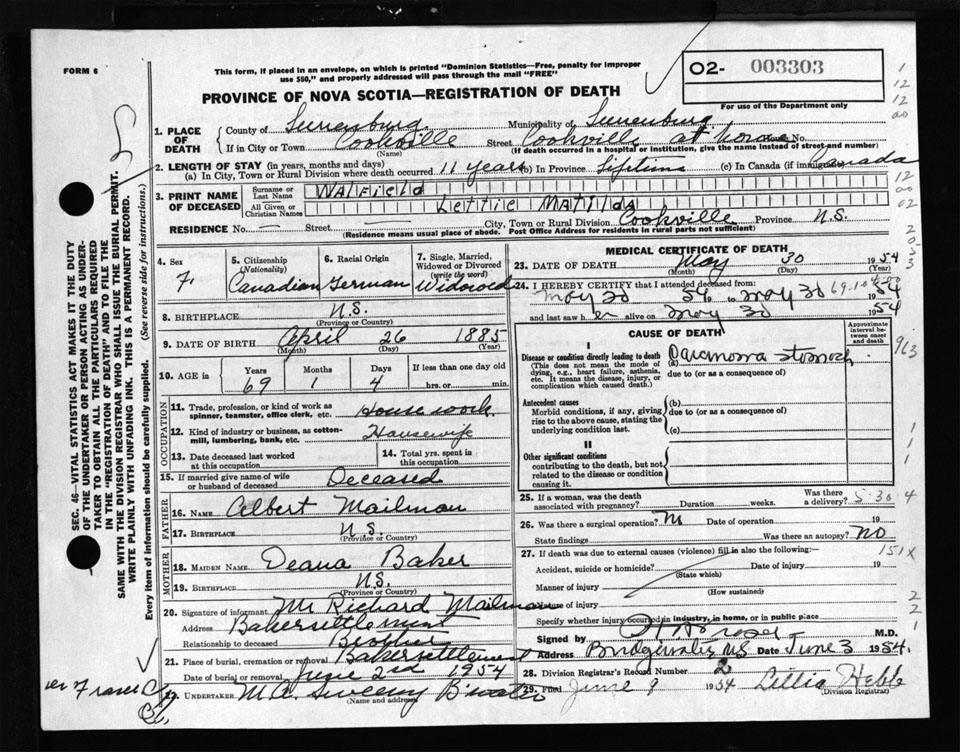 FORM 6
This form, if placed in an envelope, on which is printed "Dominion Statistics—Free, penalty for improper use $50," and properly addressed will pass through the mail "FREE"
O2- 003303
For use of the Department only
PROVINCE OF NOVA SCOTIA—REGISTRATION OF DEATH
1. PLACE OF DEATH
County of Lunenburg Municipality of Lunenburg
If in City or Town Cookville (Name) Street Cookville at home No.
(If death occurred in a hospital or institution, give the name instead of street and number)
2. LENGTH OF STAY (in years, months and days)
(a) In City, Town or Rural Division where death occurred 11 years (b) In Province Lifetime (c) In Canada (if immigrant) Canada
3. PRINT NAME OF DECEASED
Surname or Last Name Walfield
All Given or Christian Names Lettie Matilda
RESIDENCE No. — Street — City, Town or Rural Division Cookville Province N.S.
(Residence means usual place of abode. Post Office Address for residents in rural parts not sufficient)
4. Sex F.
5. Citizenship (Nationality) Canadian
6. Racial Origin German
7. Single, Married, Widowed or Divorced (write the word) Widowed
8. BIRTHPLACE N.S. (Province or Country)
9. DATE OF BIRTH April 26 1885 (Month) (Day) (Year)
10. AGE in Years 69 Months 1 Days 4 If less than one day old hrs. or min.
OCCUPATION
11. Trade, profession, or kind of work as spinner, teamster, office clerk, etc. House work
12. Kind of industry or business, as cotton-mill, lumbering, bank, etc. Housewife
13. Date deceased last worked at this occupation
14. Total yrs. spent in this occupation
15. If married give name of wife or husband of deceased Deceased
FATHER
16. NAME Albert Mailman
17. BIRTHPLACE N.S. (Province or Country)
MOTHER
18. MAIDEN NAME Deana Baker
19. BIRTHPLACE N.S. (Province or Country)
20. Signature of informant Mr Richard Mailman
Address Bakersettlement
Relationship to deceased Brother
21. Place of burial, cremation or removal Bakersettlement
Date of burial or removal June 2nd 1954
22. UNDERTAKER M.A. Sweeny B'water (Name and address)
MEDICAL CERTIFICATE OF DEATH
23. DATE OF DEATH May 30 1954 (Month) (Day) (Year)
24. I HEREBY CERTIFY that I attended deceased from:
May 30 54 to May 30 1954
and last saw her alive on May 30 1954
CAUSE OF DEATH
Approximate interval between onset and death
I
Disease or condition directly leading to death (a) stomach
(This does not mean the mode of dying, e.g., heart failure, asthenia, etc. It means the disease, injury, or complication which caused death.)
due to (or as a consequence of)
Antecedent causes
Morbid conditions, if any, giving rise to the above cause, stating the underlying condition last.
(b)
due to (or as a consequence of)
(c)
II
Other significant conditions
contributing to the death, but not related to the disease or condition causing it.
25. If a woman, was the death associated with pregnancy? Duration weeks. Was there a delivery? 5-30-4
26. Was there a surgical operation? No Date of operation 19
State findings Was there an autopsy? No
27. If death was due to external causes (violence) fill in also the following:—
Accident, suicide or homicide? (State which) Date of injury 19
Manner of injury (How sustained)
Nature of injury
Specify whether injury occurred in industry, in home, or in public place
Signed by M.D.
Address Bridgewater, N.S. Date June 3 1954.
28. Division Registrar's Record Number 2
29. Filed June 9 1954 Lillia Hebb (Division Registrar)
SEC. 46—VITAL STATISTICS ACT MAKES IT THE DUTY
OF THE UNDERTAKER OR PERSON ACTING AS UNDER-
TAKER TO OBTAIN ALL THE PARTICULARS REQUIRED
IN THE "REGISTRATION OF DEATH" AND TO FILE THE
SAME WITH THE DIVISION REGISTRAR WHO SHALL ISSUE THE BURIAL PERMIT.
WRITE PLAINLY WITH UNFADING INK. THIS IS A PERMANENT RECORD.
Every item of information should be carefully supplied. (See reverse side for instructions.)
1
12
12
00
12
00
02
2
0
5
3
963
1
1
1
151X
2
2
1